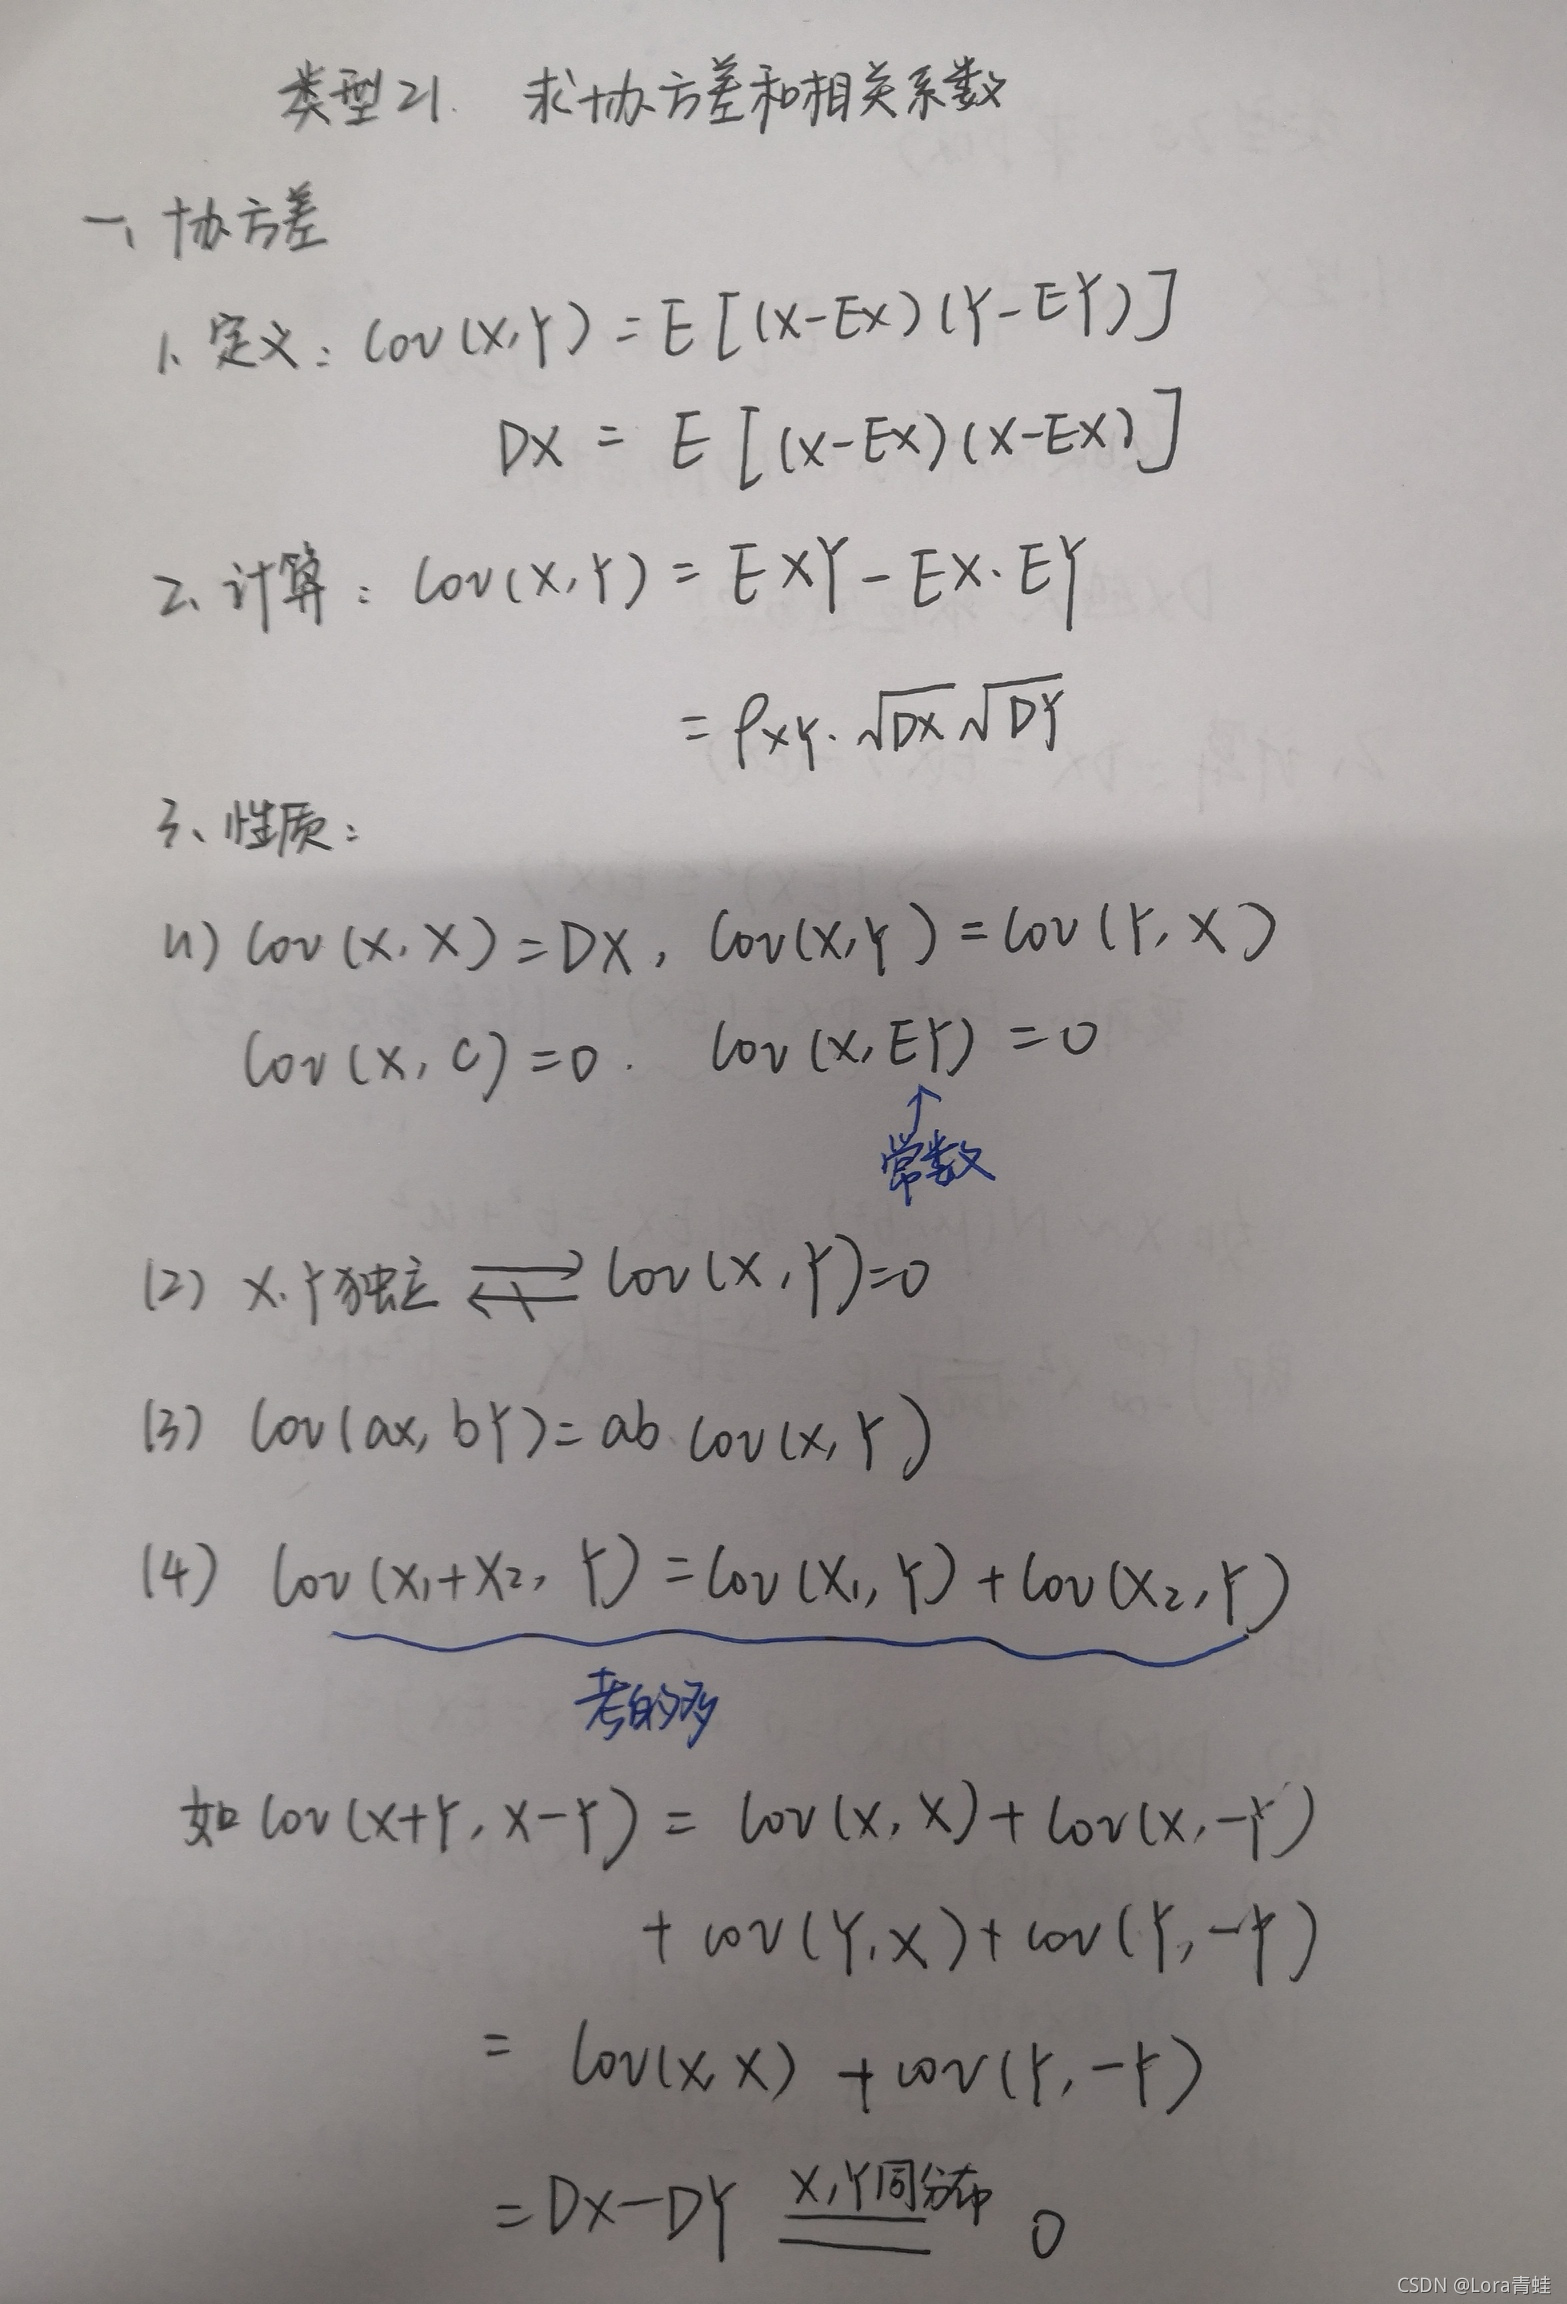 类型21. 求协方差和相关系数
一、协方差
1、定义: Cov(X,Y) = E[(X-EX)(Y-EY)]
DX = E[(X-EX)(X-EX)]
2、计算: Cov(X,Y) = EXY - EX·EY
= ρXY·√DX √DY
3、性质:
(1) Cov(X,X)=DX, Cov(X,Y)=Cov(Y,X)
Cov(X,C)=0. Cov(X,EY)=0
↑
常数
(2) X,Y独立 ⇌ Cov(X,Y)=0
(3) Cov(aX,bY)=ab Cov(X,Y)
(4) Cov(X₁+X₂,Y)=Cov(X₁,Y)+Cov(X₂,Y)
考的多
如 Cov(X+Y,X-Y) = Cov(X,X)+Cov(X,-Y)
+ Cov(Y,X)+Cov(Y,-Y)
= Cov(X,X) + Cov(Y,-Y)
= DX-DY X,Y同分布 0
CSDN @Lora青蛙